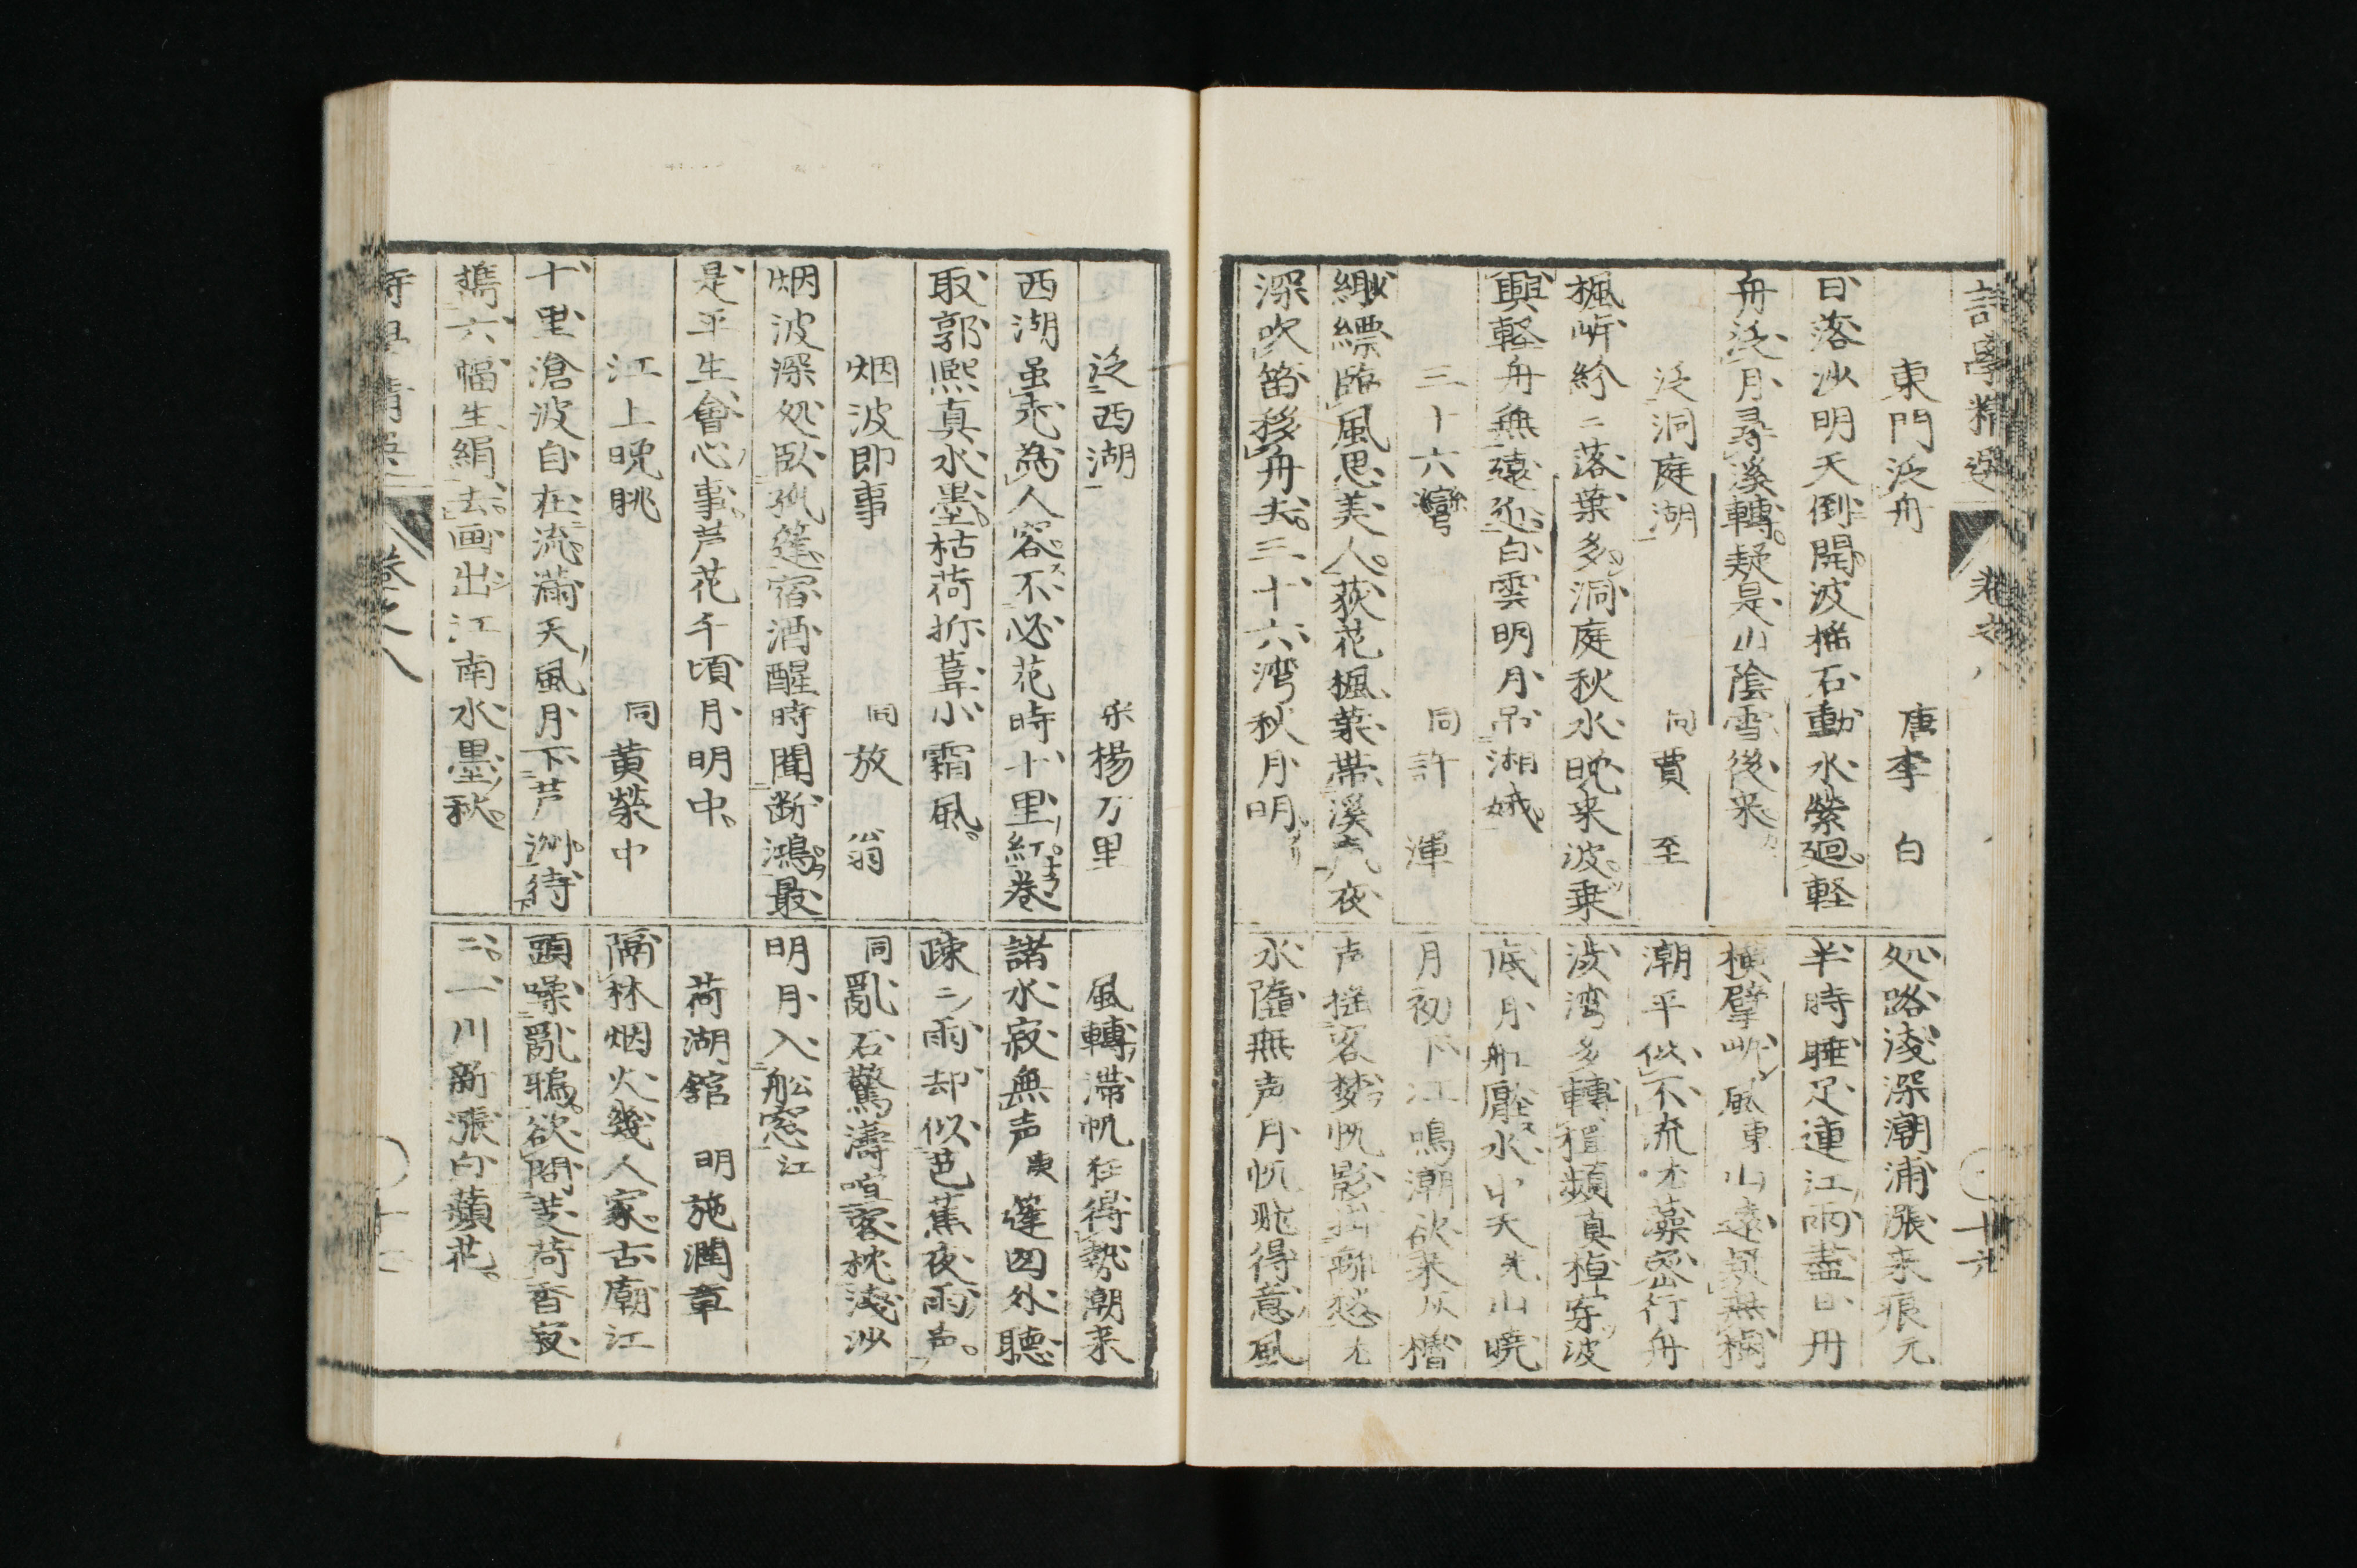 詩學精選
卷之八
東門泛舟　唐李　白
日落沙明天倒開波搖石動水縈廻軽
舟泛月尋溪轉疑是山陰雪後来
泛洞庭湖　同賈　至
楓岸紛二落葉多洞庭秋水晩来波乗
興軽舟無遠近白雲明月吊湘娥
三十六灣　同許　渾
緲縹臨風思美人荻花楓葉帯溪声夜
深吹笛移舟去三十六湾秋月明
処路浅深潮浦漲来痕元
半時睡足連江雨蓋日舟
横擘岸風東山遠
潮平似不流尤藻密行舟
渋湾多轉楫頻真棹穿波
底月舡厭水中天先山暁
月初下江鳴潮欲来灰櫓
声揺客夢帆影掛離愁尤
水隨無声月帆飽得意風
泛西湖　宋楊万里
西湖虽老為人容不必花時十里紅巻
取郭熙真水墨枯荷折葦小霜風
烟波即事　同放　翁
烟波深処臥孤篷宿酒醒時聞断鴻最
是平生會心事芦花千頃月明中
江上晩眺　同黄榮中
十里滄波自在流満天風月下芦洲待
攜六幅生絹去画出江南水墨秋
風轉滞帆狂得勢潮来
諸水寂無声庚篷囱外聴
疎二雨却似芭蕉夜雨声
同亂石驚濤喧客枕浅沙
明月入舩窓江
荷湖舘　明施潤章
隔林烟火幾人家古廟江
頭噪亂鴉欲問芰荷香寂
二一川新漲白蘋花
卷之八